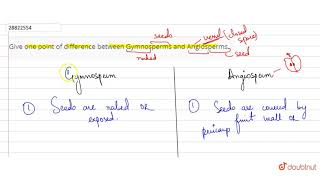 28822554
seeds
Give one point of difference between Gymnosperms and Angiosperms.
naked
seed
① Gymnosperm
Angiosperm →
① Seeds are naked or exposed.
① Seeds are covered by pericarp fruit wall or
doubtnut